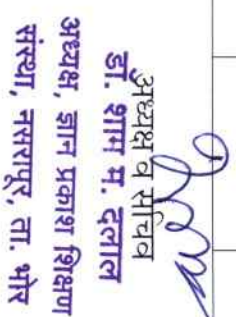 अध्यक्ष व सचिव
डा. शाम म. दलाल
अध्यक्ष, ज्ञान प्रकाश शिक्षण
संस्था, नसरापूर, ता. भोर